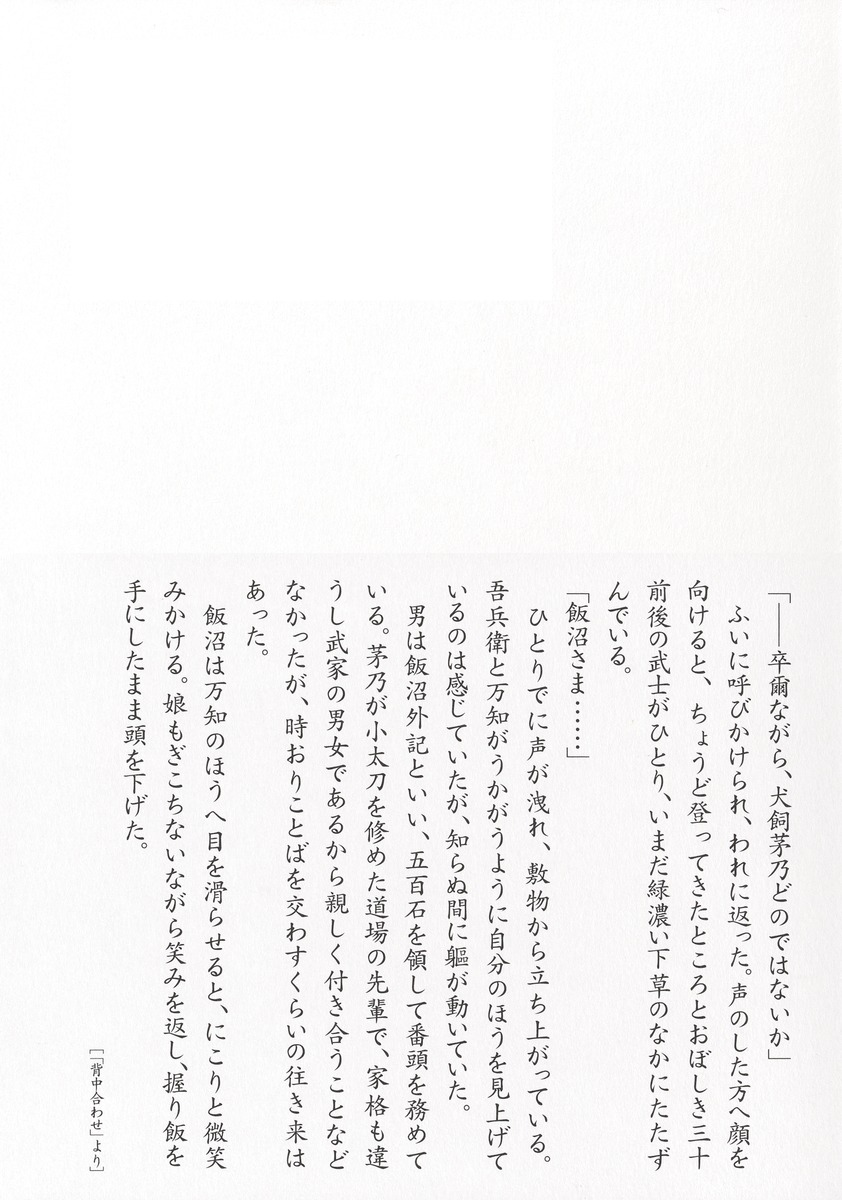 「――卒爾ながら、犬飼茅乃どのではないか」
　ふいに呼びかけられ、われに返った。声のした方へ顔を
向けると、ちょうど登ってきたところとおぼしき三十
前後の武士がひとり、いまだ緑濃い下草のなかにたたず
んでいる。
「飯沼さま……」
　ひとりでに声が洩れ、敷物から立ち上がっている。
吾兵衛と万知がうかがうように自分のほうを見上げて
いるのは感じていたが、知らぬ間に軀が動いていた。
　男は飯沼外記といい、五百石を領して番頭を務めて
いる。茅乃が小太刀を修めた道場の先輩で、家格も違
うし武家の男女であるから親しく付き合うことなど
なかったが、時おりことばを交わすくらいの往き来は
あった。
　飯沼は万知のほうへ目を滑らせると、にこりと微笑
みかける。娘もぎこちないながら笑みを返し、握り飯を
手にしたまま頭を下げた。
［「背中合わせ」より］